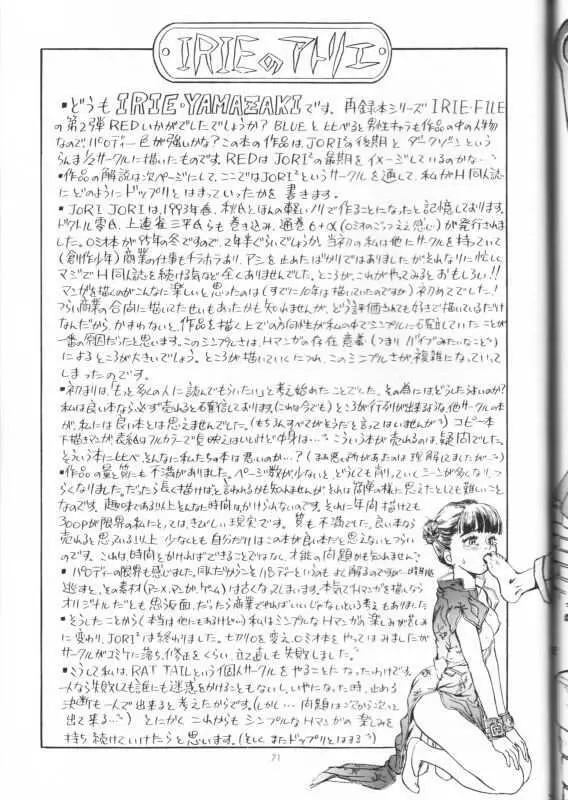 IRIEのアトリエ
・どうもIRIE・YAMAZAKIです。再録本シリーズIRIE-FILE
の第2弾REDいかがでしたでしょうか?BLUEと比べると男性キャラも作品の中の人物
なのでパロディー色が強いかな?この本の作品は、JORI²の後期とダークゾーンという
らんま1/2サークルに描いたものです。REDはJORI²の最期をイメージしているのかな…
・作品の解説は次ページにして、ここではJORI²というサークルを通して、私がH同人誌
にどのようにドップリとはまっていったかを書きます。
・JORI JORIは、1993年春、 とほんの軽いノリで作ることになったと記憶しております。
ドクトル零氏、上連雀三平氏らも巻き込み、通巻6+α(0ミオのごっつええ感じ)が発行されま
した。0ミオが95年の冬ですので、2年半ぐらいでしょうか。当初の私は他にサークルを持っていて
(創作少年)商業の仕事もチラホラあり、アシを止めたばかりではありましたがそれなりに忙しく
マジでH同人誌を続ける気など全くありませんでした。ところが、これがやってみるとおもしろい!!
マンガを描くのがこんなに楽しいと思ったのは(すでに10年は描いていたのですが)初めてでした!
つらい商業の合間に描いてたせいもあったかも知れませんが、どう評価されても好きで描いているだけ
なんだから、かまわないと、作品を描く上での方向性が私の中でシンプルに確立していたことが
一番の原因だったと思います。このシンプルさは、Hマンガの存在意義(つまりバイブみたいなこと)
によるところが大きいでしょう。ところが描いていくにつれ、このシンプルさが、複雑になっていって
しまったのです。
・初まりは、「もっと多くの人に読んでもらいたい」と考え始めたことでした。その為にはどうしたらよいのか?
私は良い本なら必ず売れると確信しております。(これは今でも)ところが行列が出来るような、他サークルの本
が、私には良い本とは思えませんでした。(もちろんすべてがそうだと言ってはいませんが)コピー本
下描きマンガ、表紙はフルカラーで見映えはいいけど中身は…こういう本が売れるのは、疑問でした。
そういう本に比べ、そんなに私たちの本は悪いのか…?(まあ悪い所があったのは理解してましたが…)
・作品の量と質にも不満がありました。ページ数が少ないと、どうしても削っていくシーンが多くなり、つ
らくなりました。だったら長く描けば、と言われるかも知れませんが、それは簡単の様に思えたとしても難しいこと
なのです。趣味である以上そんなに時間はかけられないのです。それに年間描けても
300Pが限界の私にとっては、きびしい現実です。質も不満でした。良い本なら
売れると思っている以上少なくとも自分だけはこの本が良い本だと思えないとつらい
のです。これは、時間をかければできることではなく、才能の問題かも知れません?
・パロディーの限界も感じました。同人だからこそパロディーというのもよく解るのですが、一時期
逃すと、その素材(アニメ、マンガ、ゲーム)は古くなってしまいます。本気でHマンガを描くなら
オリジナルだとも思う反面、だったら商業でやればいいじゃないという考えもありました
・そうしたことから(本当は他にもあるけど)私はシンプルなHマンガが楽しみが苦しみ
に変わり、JORI²は終わりました。七力リロを変え、0ミオ本をやってはみましたが
サークルがコミケに落ち、修正をくらい、立て直しも失敗しました。
・こうして私は、RAT TAILという個人サークルをやることになったわけです。
一人なら失敗しても誰にも迷惑をかけることもないし、いやになった時、止める
決断も一人で出来ると考えたからです。(しかし…問題は次から次へと
出て来る…)とにかくこれからもシンプルなHマンガの楽しみを
持ち続けていけたらと思います。(とし、またドップリとはまる)
71